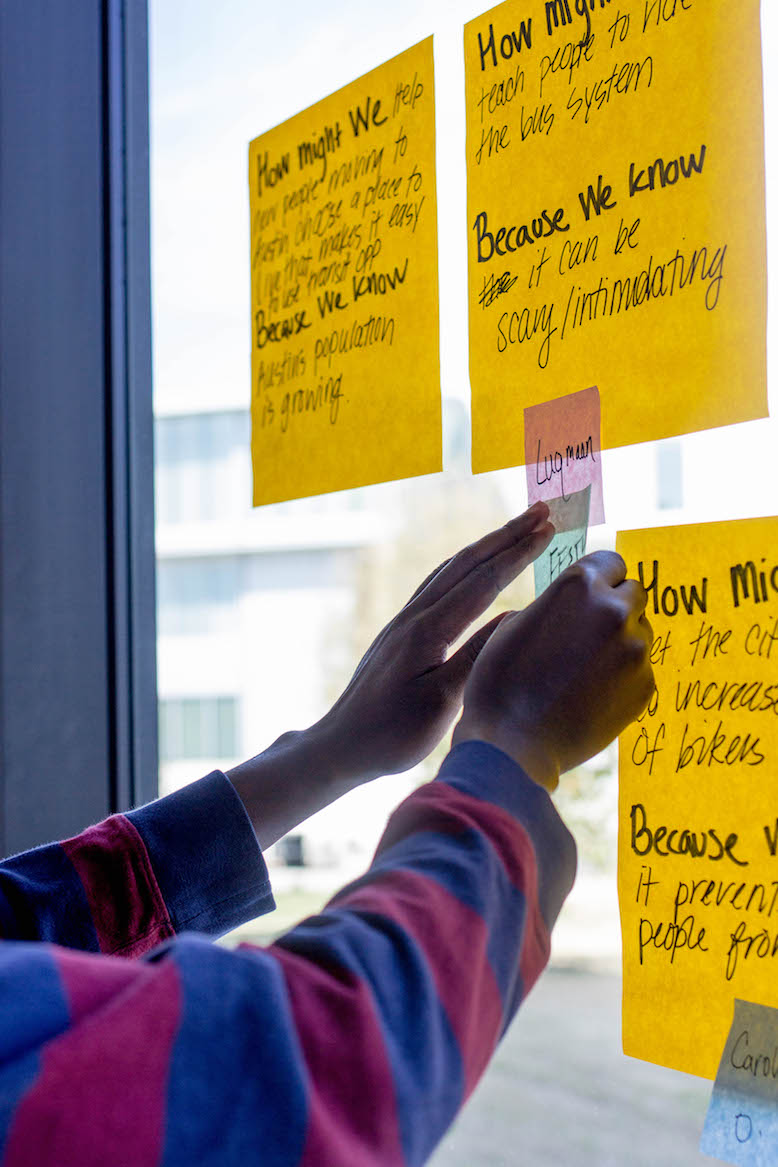 How might We Help
new people moving to
Austin choose a place to
live that makes it easy
to use transit opp
Because We know
Austin's population
is growing.
How might
teach people to ride
the bus system
Because We know
it can be
scary/intimidating
Luqmaan
How
et the
to increase
of bikers
Because
it prevent
people from
O.